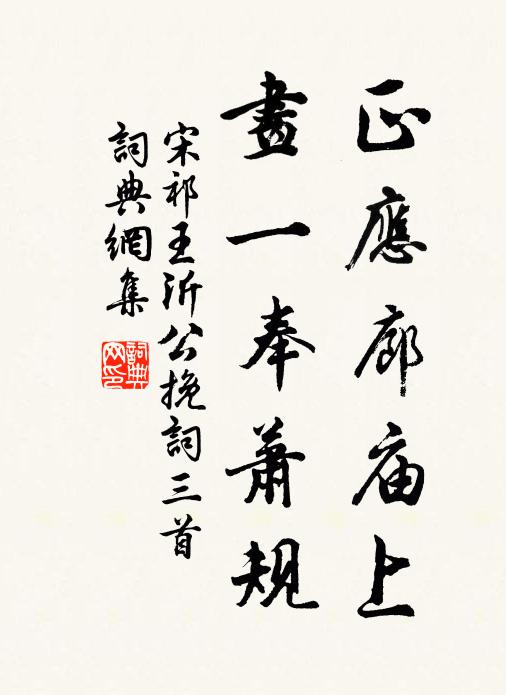 正應廊庙上
畫一奉蕭規
宋祁王沂公挽詞三首
詞典網集
詞典网印